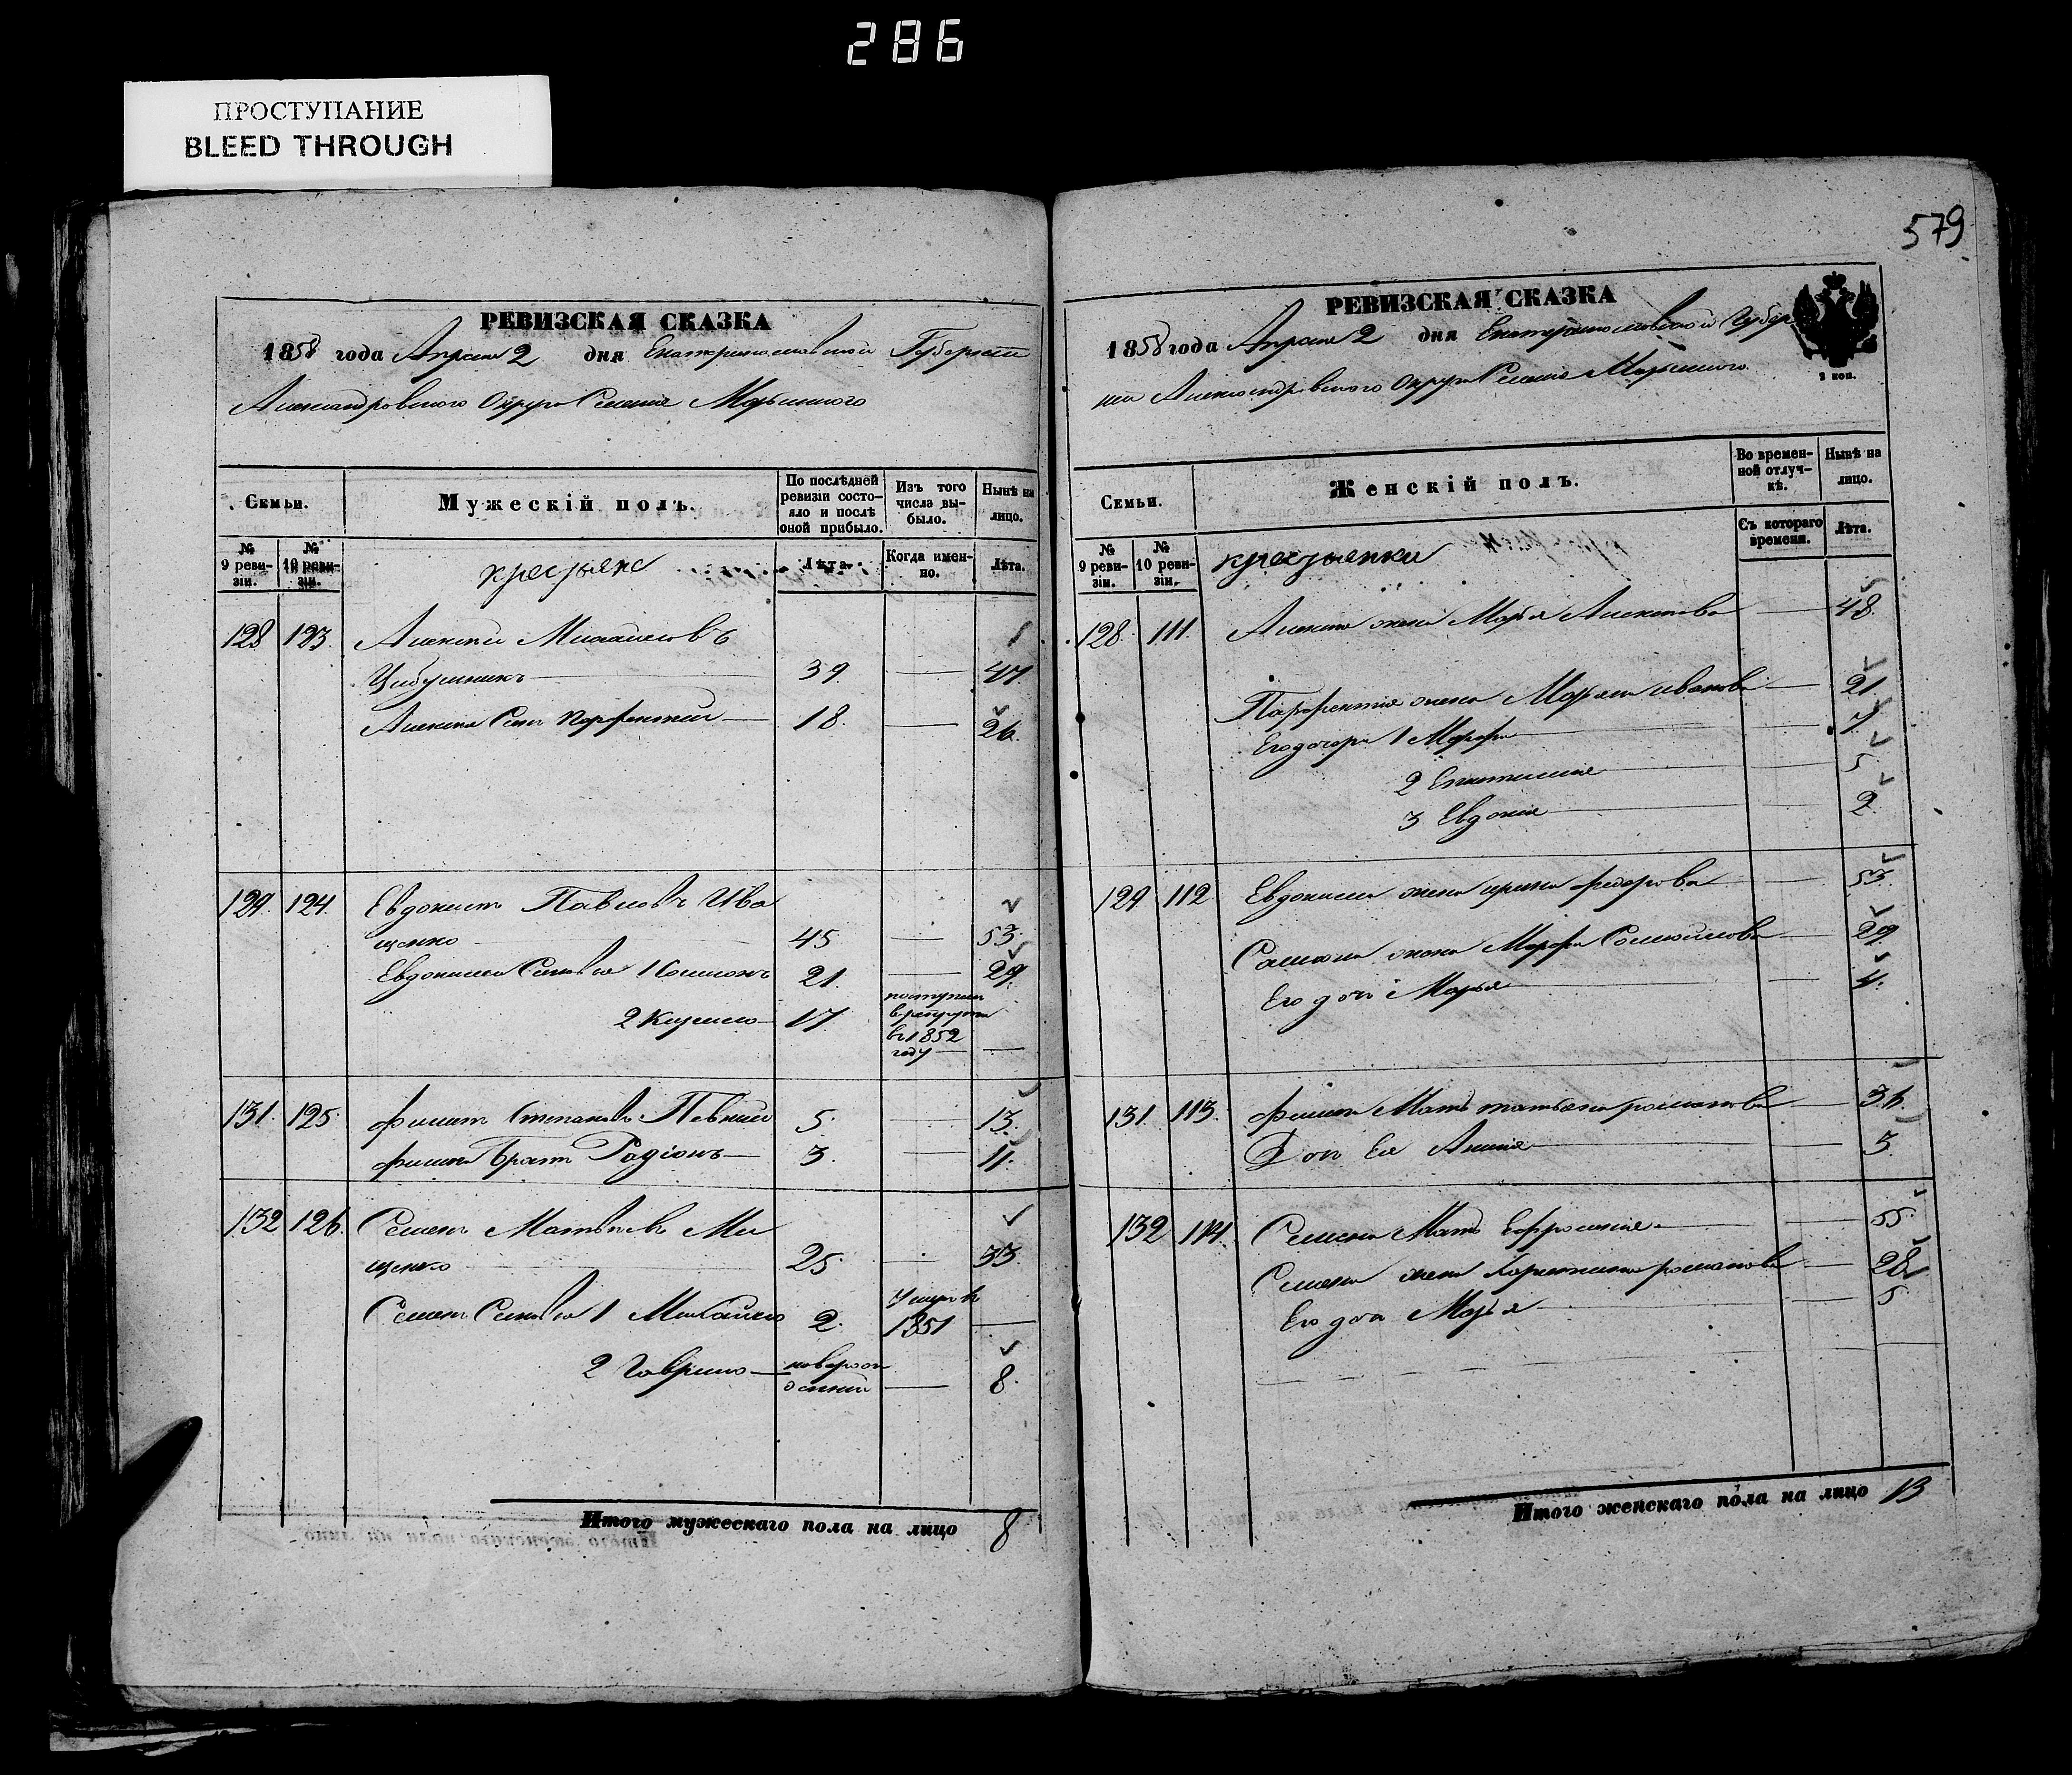 286
ПРОСТУПАНИЕ
BLEED THROUGH
РЕВИЗСКАЯ СКАЗКА
1858 года Апреля 2 дня Екатеринославской Губернии
Александровского Округа Селения Марьинского
Семьи.
Мужескій полъ.
По послѣдней ревизіи состояло и послѣ оной прибыло.
Изъ того числа выбыло.
Нынѣ на лицо.
№ 9 ревизіи.
№ 10 ревизіи.
крестьяне
Лѣта.
Когда именно.
Лѣта.
128 123. Алексей Михайловъ
39. 47
Алексея Сынъ Парфентий 18. 26.
129. 124. Евдокимъ Павловъ Ива
щенко 45 53.
Евдокима Сыновья 1 Самсонъ 21. 29.
2 Кирило 17. поступилъ
в рекруты
въ 1852
году
131. 125. Филипъ Степановъ 5. 13.
Филипа Братъ Родіонъ 3. 11.
132 126. Семенъ Матвѣевъ Ми
щенко 25. 33.
Семена Сыновья 1 Михайло 2. Умеръ въ
1851
2 Гаврило новорож
денный 8.
Итого мужескаго пола на лицо 8
579
РЕВИЗСКАЯ СКАЗКА
1858 года Апреля 2 дня Екатеринославской Губер
нии Александровского Округа Селения Марьинского
2 коп.
Семьи.
Женскій полъ.
Во временной отлучкѣ.
Нынѣ на лицо.
№ 9 ревизіи.
№ 10 ревизіи.
крестьянки
Съ котораго времени.
Лѣта.
128. 111. Алексея жена Марья Алексеева 48.
Парфентия жена Марья иванова 21.
Его дочери 1 Марфа 7.
2 5.
3 Евдокия 2.
129 112 Евдокима жена ирина федорова 53.
жена Марфа 29.
Его дочь Марья 4.
131. 113. Филипа Мать татьяна романова 36.
Дочь Ея 3.
132 114. Семена Мать Ефросиния 55.
Семена жена романова 28
Его дочь Марья 5
Итого женскаго пола на лицо 13